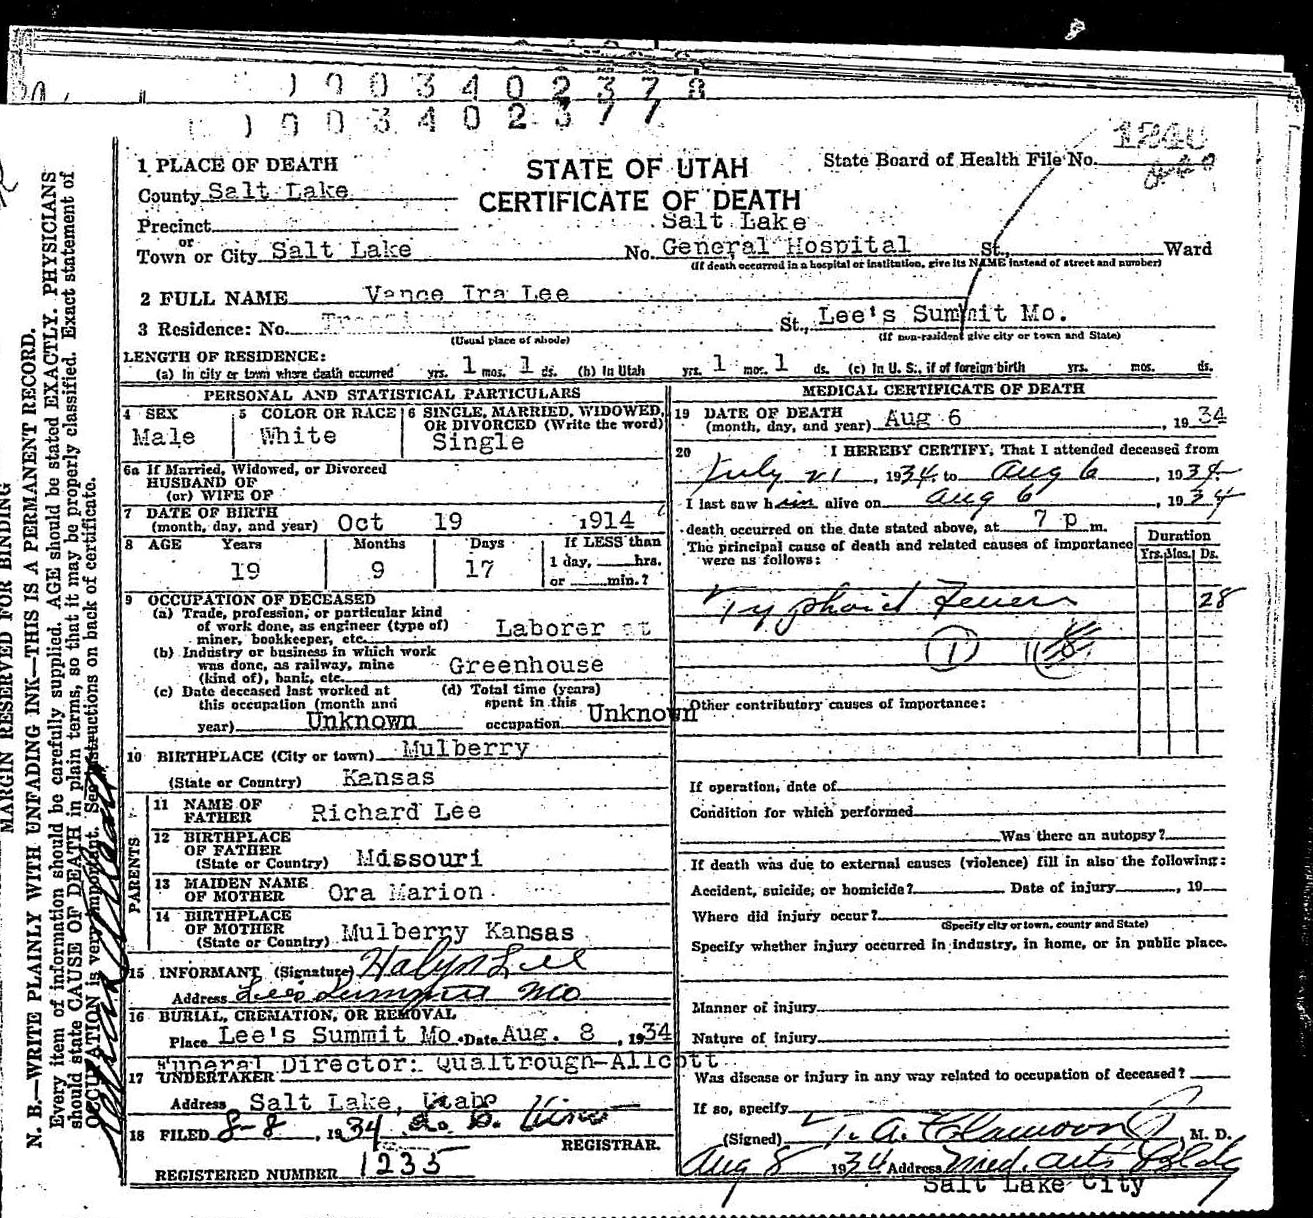 1 0 0 3 4 0 2 3 7 8
1 0 0 3 4 0 2 3 7 7
1 PLACE OF DEATH
STATE OF UTAH
CERTIFICATE OF DEATH
State Board of Health File No.
County Salt Lake
Precinct
or
Town or City Salt Lake
Salt Lake
No. General Hospital St., Ward
(If death occurred in a hospital or institution, give its NAME instead of street and number)
2 FULL NAME Vance Ira Lee
3 Residence: No. St., Lee's Summit Mo.
(Usual place of abode) (If non-resident give city or town and State)
LENGTH OF RESIDENCE:
(a) In city or town where death occurred yrs. 1 mos. 1 ds. (b) In Utah yrs. 1 mos. 1 ds. (c) In U. S., if of foreign birth yrs. mos. ds.
PERSONAL AND STATISTICAL PARTICULARS
4 SEX
Male
5 COLOR OR RACE
White
6 SINGLE, MARRIED, WIDOWED,
OR DIVORCED (Write the word)
Single
6a If Married, Widowed, or Divorced
HUSBAND OF
(or) WIFE OF
7 DATE OF BIRTH
(month, day, and year) Oct 19 1914
8 AGE Years Months Days If LESS than
1 day, hrs.
19 9 17 or min.?
9 OCCUPATION OF DECEASED
(a) Trade, profession, or particular kind
of work done, as engineer (type of)
miner, bookkeeper, etc. Laborer at
(b) Industry or business in which work
was done, as railway, mine
(kind of), bank, etc. Greenhouse
(c) Date deceased last worked at
this occupation (month and
year) Unknown
(d) Total time (years)
spent in this
occupation Unknown
10 BIRTHPLACE (City or town) Mulberry
(State or Country) Kansas
PARENTS
11 NAME OF
FATHER Richard Lee
12 BIRTHPLACE
OF FATHER
(State or Country) Missouri
13 MAIDEN NAME
OF MOTHER Ora Marion
14 BIRTHPLACE
OF MOTHER
(State or Country) Mulberry Kansas
15 INFORMANT (Signature) Lee
Address Lee's Summit Mo
16 BURIAL, CREMATION, OR REMOVAL
Place Lee's Summit Mo. Date Aug. 8, 1934
Funeral Director: Qualtrough-Allcott
17 UNDERTAKER
Address Salt Lake, Utah
18 FILED 8-8, 1934
REGISTRAR.
REGISTERED NUMBER 1235
MEDICAL CERTIFICATE OF DEATH
19 DATE OF DEATH
(month, day, and year) Aug 6, 1934
20 I HEREBY CERTIFY, That I attended deceased from
July 21, 1934 to Aug 6, 1934
I last saw him alive on Aug 6, 1934
death occurred on the date stated above, at 7 p m.
The principal cause of death and related causes of importance
were as follows:
Duration
Yrs. Mos. Ds.
Typhoid Fever 28
1
Other contributory causes of importance:
If operation, date of
Condition for which performed
Was there an autopsy?
If death was due to external causes (violence) fill in also the following:
Accident, suicide, or homicide? Date of injury, 19
Where did injury occur?
(Specify city or town, county and State)
Specify whether injury occurred in industry, in home, or in public place.
Manner of injury
Nature of injury
Was disease or injury in any way related to occupation of deceased?
If so, specify
(Signed) T. A. , M. D.
Aug 8 1934 Address Med. Arts Bldg
Salt Lake City
MARGIN RESERVED FOR BINDING
N. B.—WRITE PLAINLY WITH UNFADING INK—THIS IS A PERMANENT RECORD.
Every item of information should be carefully supplied. AGE should be stated EXACTLY. PHYSICIANS
should state CAUSE OF DEATH in plain terms, so that it may be properly classified. Exact statement of
OCCUPATION is very important. See instructions on back of certificate.